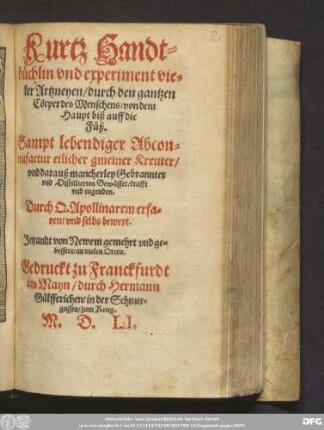 2
Kurtz Handt-
büchlin vnd experiment vie-
ler Artzneyen/durch den gantzen
Cörper des Menschens/von dem
Haupt biß auff die
Füß.
Sampt lebendiger Abcon-
trafactur etlicher gmeiner Kreuter/
vnd darauß mancherley Gebrannter
vnd Distillierten Gewässer/krafft
vnd tugenden.
Durch Q. Apollinarem erfa-
ren/vnd selbs bewert.
Jetzundt von Newem gemehrt vnd ge-
bessert/an vielen Orten.
Gedruckt zu Franckfurdt
am Mayn/durch Hermann
Gülfferichen/in der Schnur-
gassen/zum Krug.
M. D. LI.
DFG